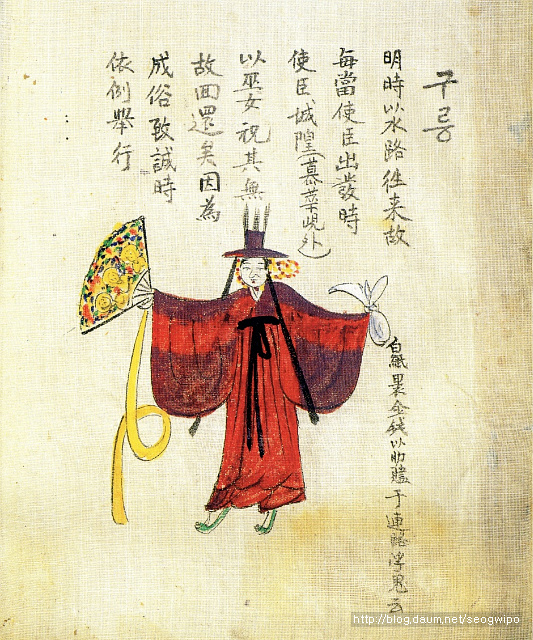 구릉
明時以水路往来故
每當使臣出發時
使臣城隍(慕華峴外)
以巫女祝其無
故回還矣因為
成俗致誠時
依例擧行
白紙裹金錢以助于浮鬼云
http://blog.daum.net/seogwipo